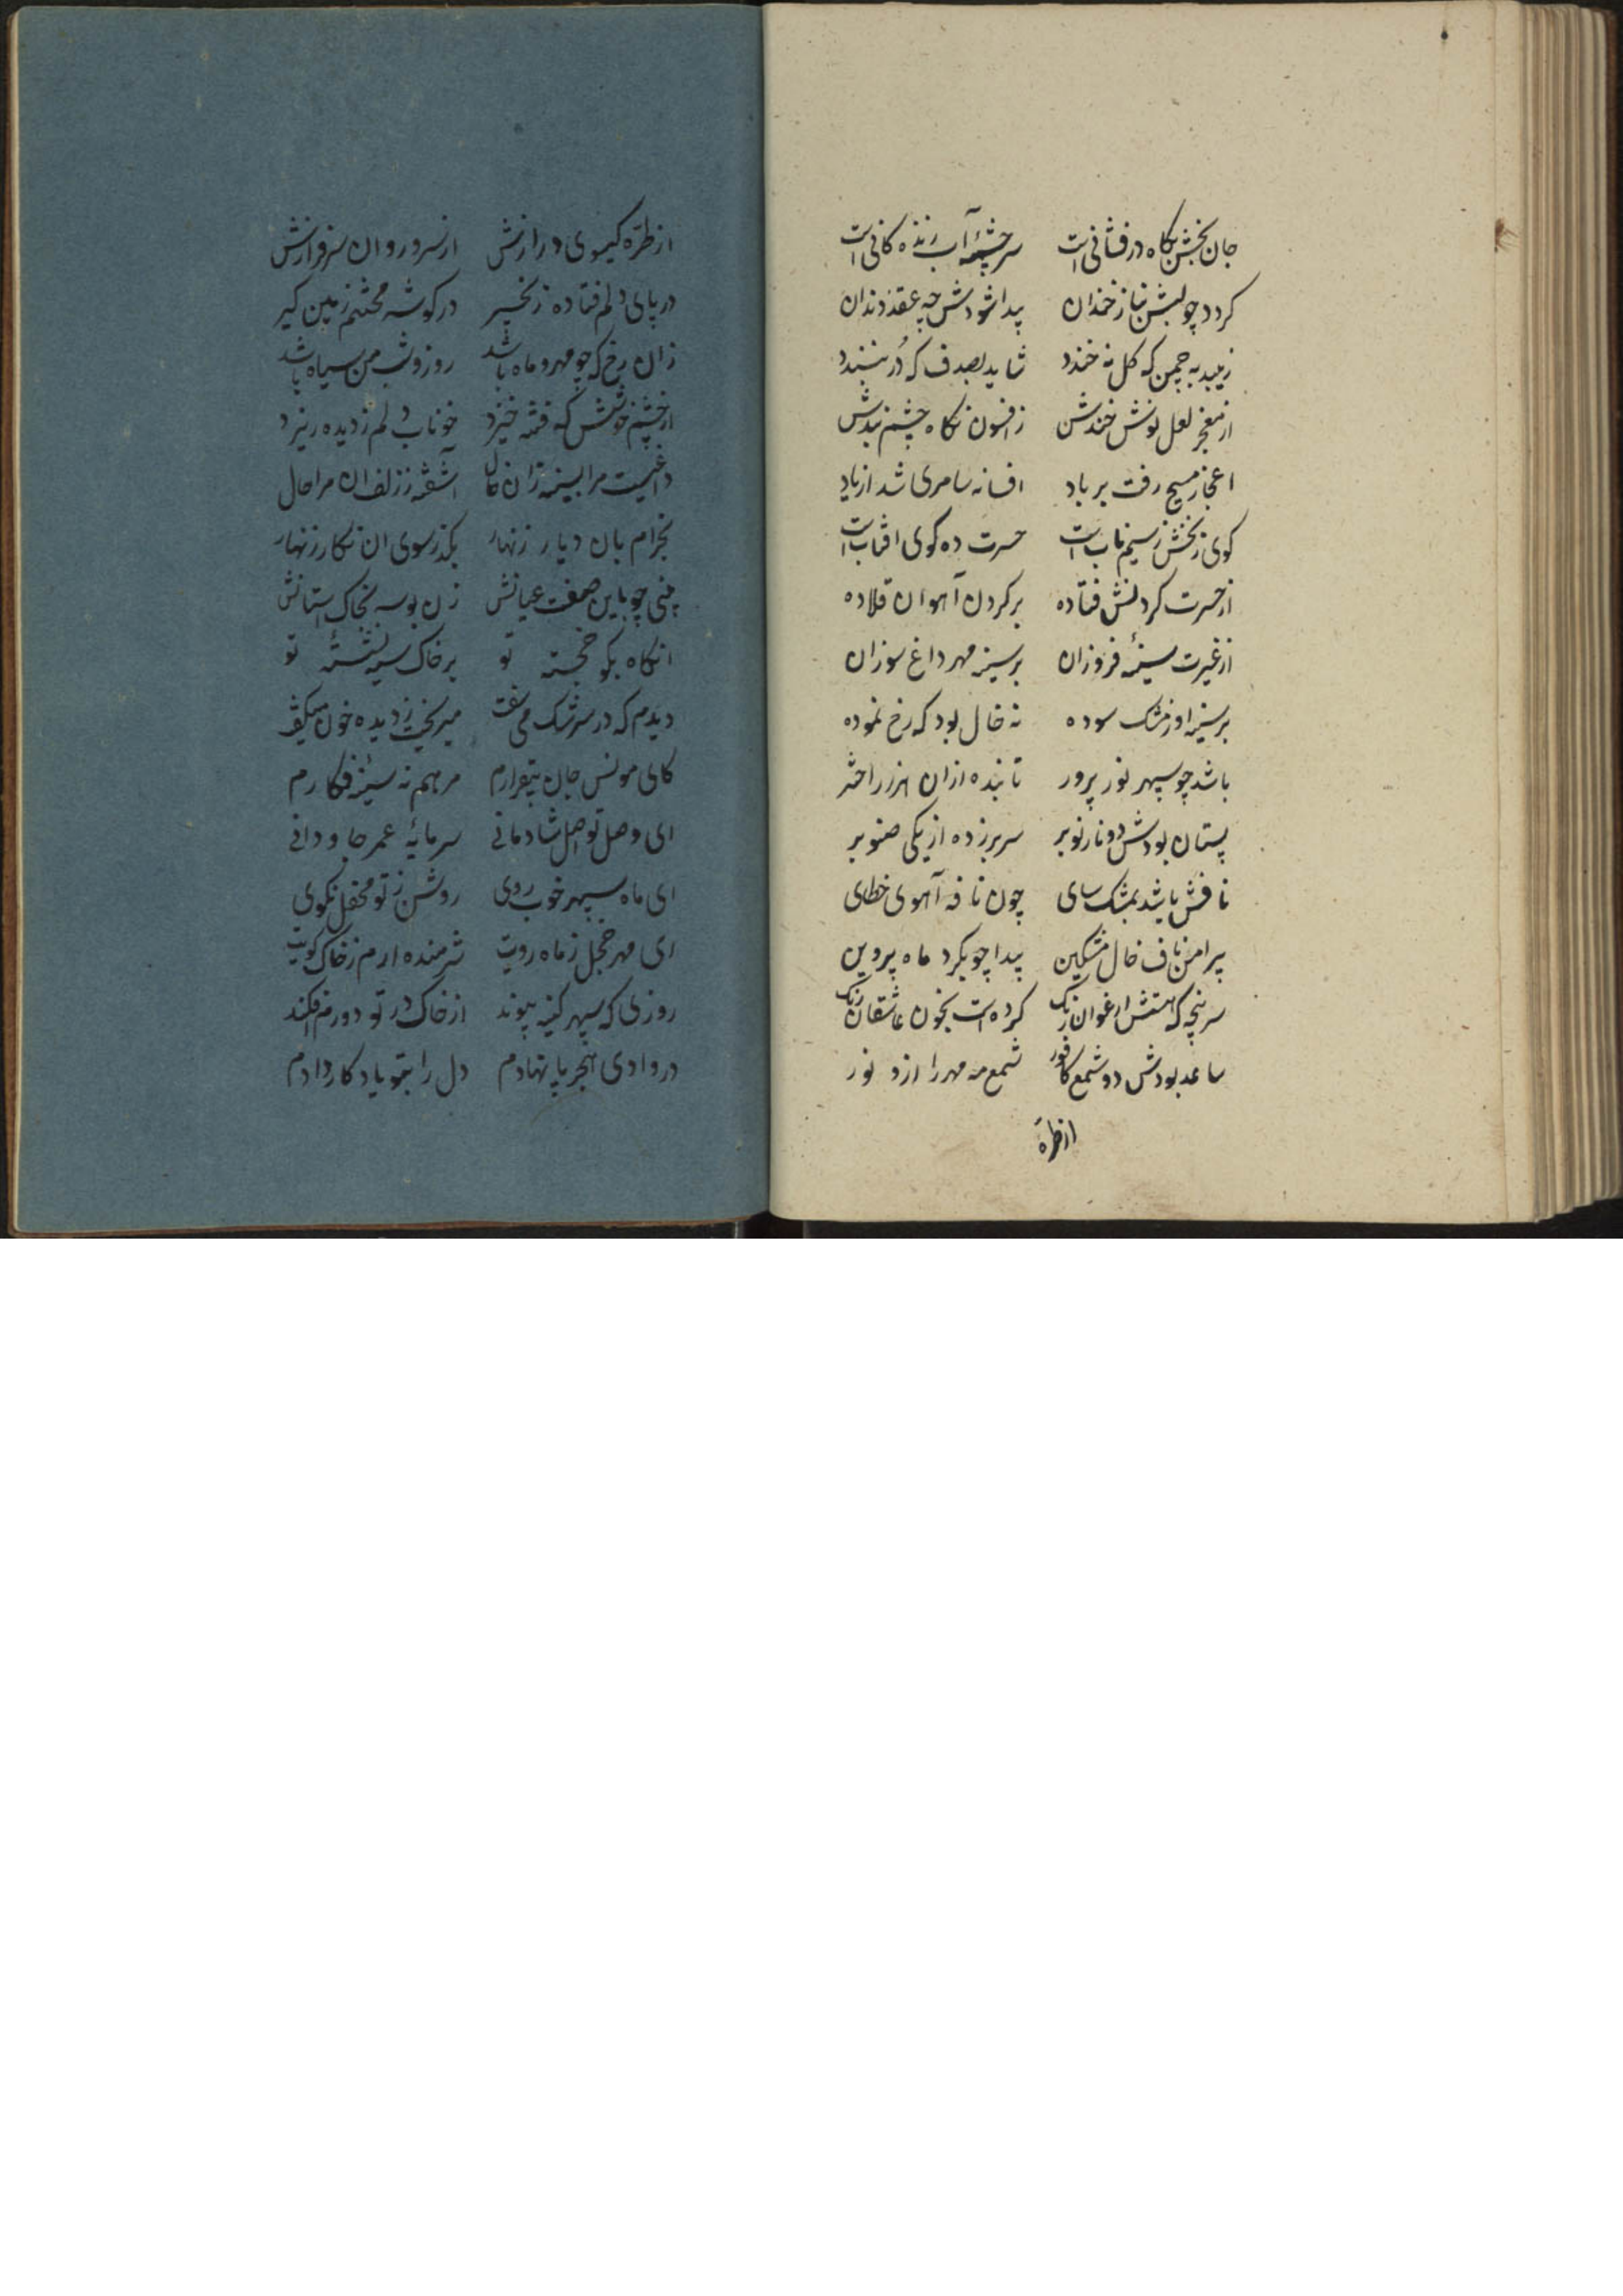 جان بخش نگاه درفشانی است سرچشمهٔ آب زنده کانی است
کردد چو لبش بناز خندان پیدا شودش چه عقد دندان
زیبد به چمن که کل نه خندد شاید بصدف که دُر نبندد
از معجز لعل نوش خندش زافسون نکاه چشم بندش
اعجاز مسیح رفت بر باد افسانه سامری شد از یاد
کوی زنخش زسیم ناب است حسرت ده کوی افتاب است
از حسرت کردنش فتاده بر کردن آهوان قلاده
از غیرت سینهٔ فروزان بر سینه مهر داغ سوزان
بر سینه او زمشک سوده نه خال بود که رخ نموده
باشد چو سپهر نور پرور تابنده ازان هزار اختر
پستان بودش دو نار نوبر سر بر زده از یکی صنوبر
نافش باشد بمشک سای چون نافه آهوی خطای
پیرامن ناف خال مشکین پیدا چو بکرد ماه پروین
سر پنجه که هستش ارغوان رنک کرده است بخون عاشقان رنک
ساعد بودش دو شمع کافور شمع مه مهر را ازو نور
از طرّه
از طرّه کیسوی درازش از سرو روان سرفرازش
در پای دلم فتاده زنجیر در کوشه محنتم زمین کیر
زان رخ که چو مهر و ماه باشد روز و شب من سیاه باشد
از چشم خوشش که فتنه خیزد خوناب دلم زدیده ریزد
داغیست مرا بسینه زان خال آشفته ززلف ان مرا حال
بخرام بان دیار زنهار بکذر سوی ان نکار زنهار
بینی چو باین صفت عیانش زن بوسه بخاک استانش
انکاه بکو خجسته تو بر خاک سیه نشستهٔ تو
دیدم که در سرشک می سفت میریخت زدیده خون میکفت
کای مونس جان بیقرارم مرهم نه سینهٔ فکارم
ای وصل تو اصل شادمانی سرمایهٔ عمر جاودانی
ای ماه سپهر خوب روی روشن زتو محفل نکوی
ای مهر خجل زماه رویت شرمنده ارم زخاک کویت
روزی که سپهر کینه پیوند از خاک در تو دورم افکند
در وادی هجر پا نهادم دل را بتو یادکار دادم